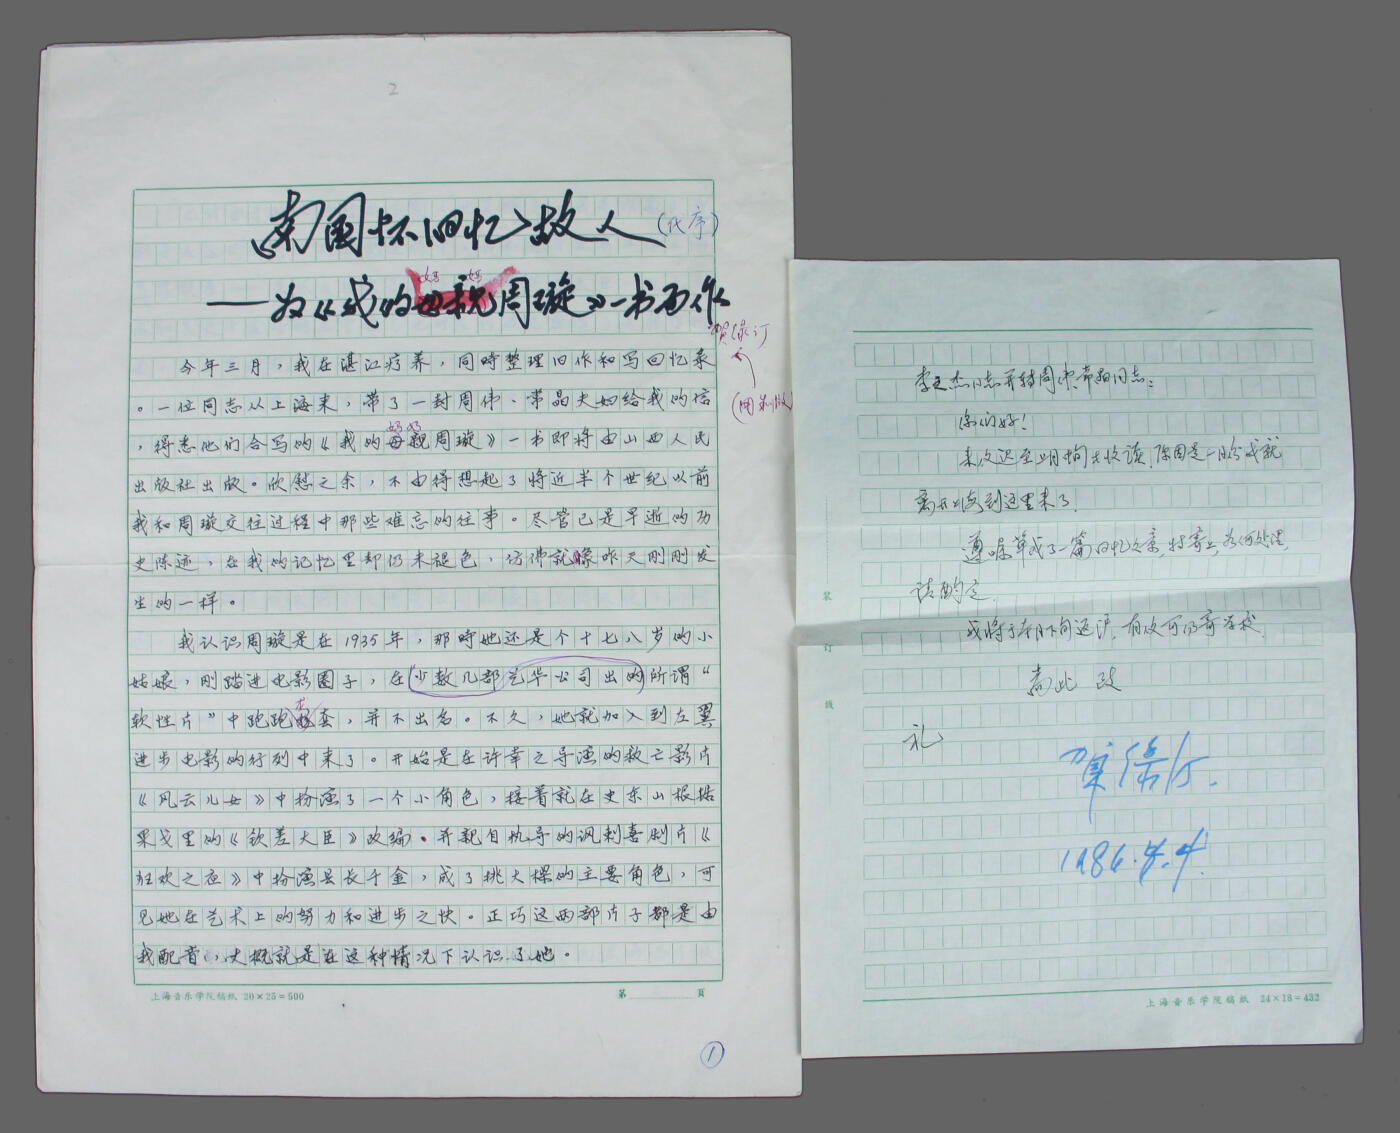 2
南国怀回忆故人(代序)
妈妈
——为《我的母亲周璇》一书而作
贺绿汀
(用制版)
今年三月，我在湛江疗养，同時整理旧作和写回忆录
。一位同志从上海来，带了一封周伟、常晶夫妇给我的信
妈妈
，得悉他们合写的《我的母亲周璇》一书即将由山西人民
出版社出版。欣慰之余，不由得想起了将近半个世纪以前
我和周璇交往过程中那些难忘的往事。尽管已是早逝的历
史陈迹，在我的记忆里却仍未褪色，仿佛就像昨天刚刚发
生的一样。
我认识周璇是在1935年，那時她还是个十七八岁的小
姑娘，刚踏进电影圈子，在少数几部艺华公司出的所谓“
软性片”中跑跑龙套，并不出名。不久，她就加入到左翼
进步电影的行列中来了。开始是在许幸之导演的救亡影片
《风云儿女》中扮演了一个小角色，接着就在史东山根据
果戈里的《钦差大臣》改编。并亲自执导的讽刺喜剧片《
狂欢之夜》中扮演县长千金，成了挑大樑的主要角色，可
见她在艺术上的努力和进步之快。正巧这两部片子都是由
我配音，大概就是在这种情况下认识了她。
上海音乐学院稿纸 20×25=500
第 頁
1
李文杰同志并转周伟、常晶同志：
你们好！
来信迟至上月中旬才收读，原因是一月份我就
离开上海到这里来了。
遵嘱草成了一篇回忆文章，特寄上，如何处理，
请酌定。
我将于本月下旬返沪，有信可仍寄学校。
耑此 致
礼
贺绿汀
1986.4.4
装
订
线
上海音乐学院稿紙 24×18=432